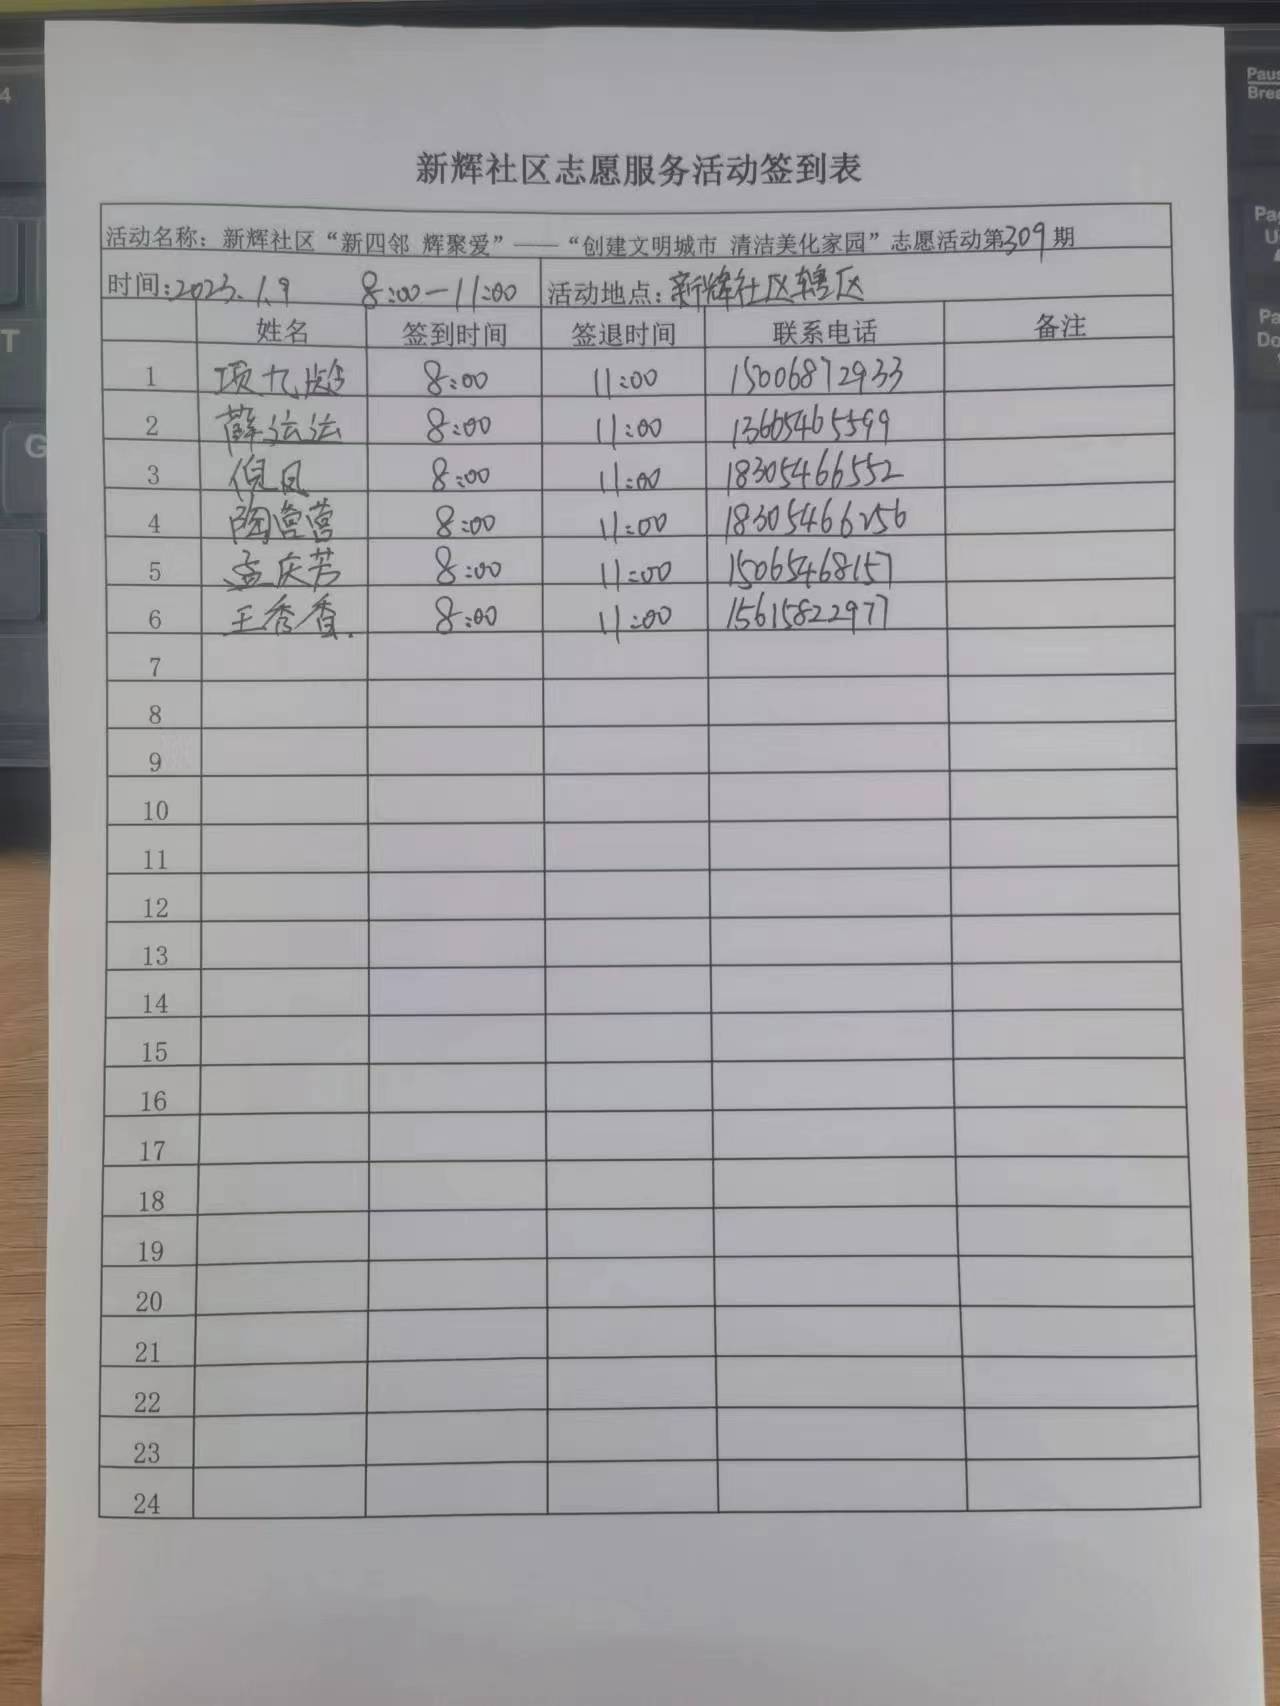 新辉社区志愿服务活动签到表
活动名称：新辉社区“新四邻 辉聚爱”——“创建文明城市 清洁美化家园”志愿活动第309期
时间：2023.1.9 8:00-11:00 活动地点：新辉社区辖区
姓名 签到时间 签退时间 联系电话 备注
1 项九 8:00 11:00 15006872933
2 薛 8:00 11:00 13605465599
3 倪凤 8:00 11:00 18305466552
4 陶营营 8:00 11:00 18305466256
5 孟庆芳 8:00 11:00 15065468157
6 王秀香. 8:00 11:00 15615822977
7
8
9
10
11
12
13
14
15
16
17
18
19
20
21
22
23
24
4
T
G
Pau
Brea
Pa
U
Pa
Do